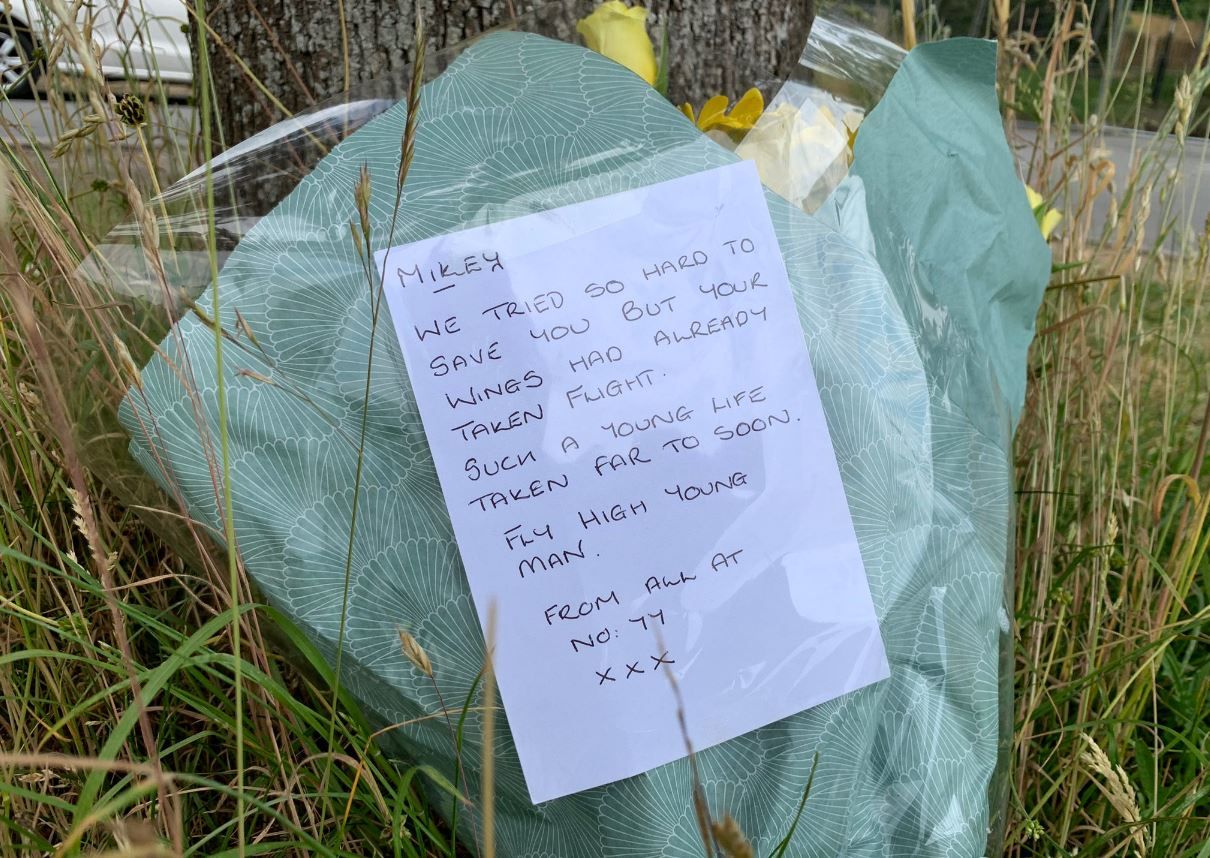 MIKEY
WE TRIED SO HARD TO
SAVE YOU BUT YOUR
WINGS HAD ALREADY
TAKEN FLIGHT.
SUCH A YOUNG LIFE
TAKEN FAR TO SOON.
FLY HIGH YOUNG
MAN.
FROM ALL AT
NO: 77
x x x